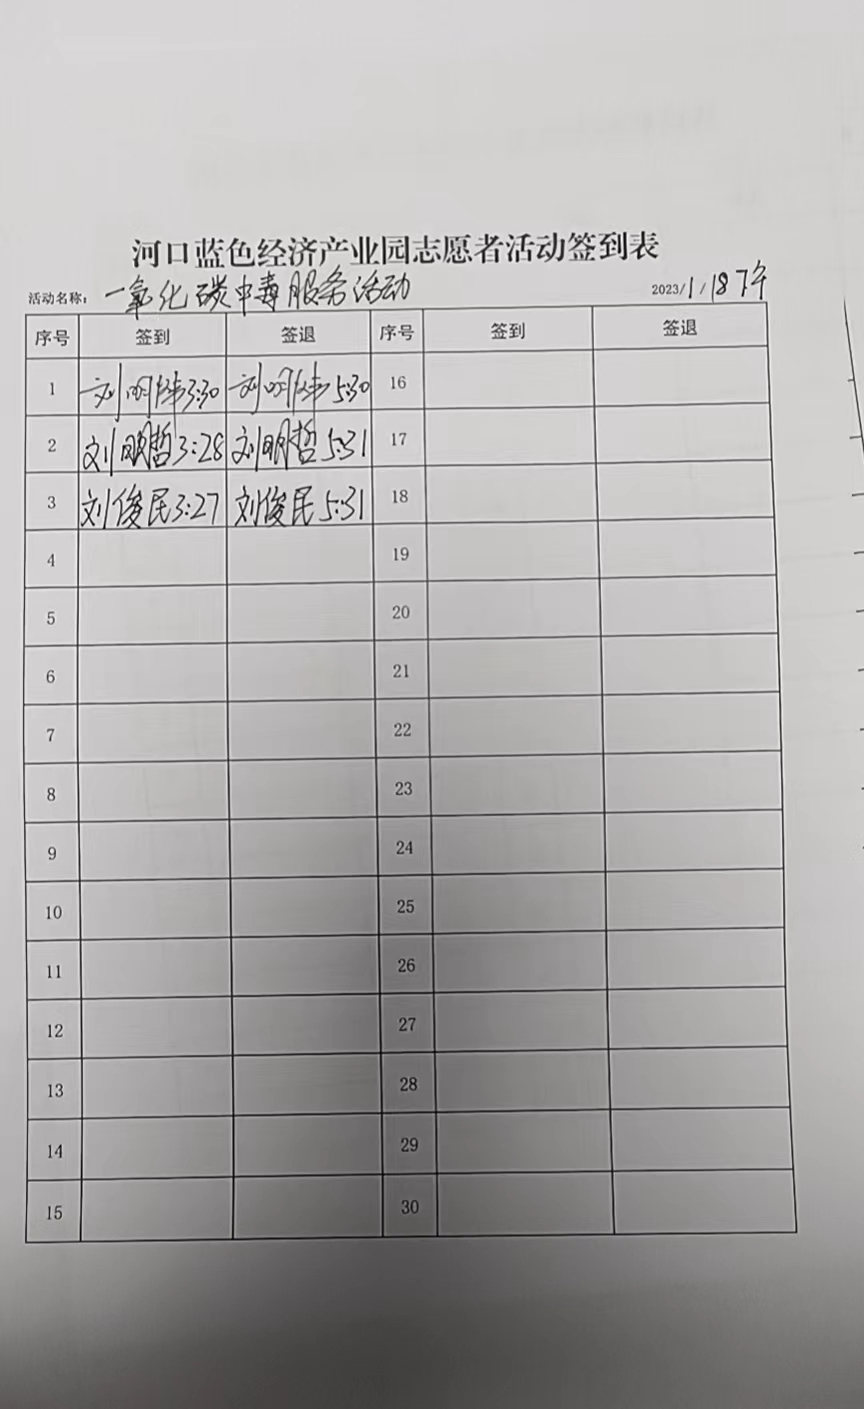 河口蓝色经济产业园志愿者活动签到表
活动名称： 一氧化碳中毒服务活动 2023/1/18 下午
序号 签到 签退 序号 签到 签退
1 刘明纬3:30 刘明纬5:30 16
2 刘明哲3:28 刘明哲5:31 17
3 刘俊民3:27 刘俊民5:31 18
4 19
5 20
6 21
7 22
8 23
9 24
10 25
11 26
12 27
13 28
14 29
15 30